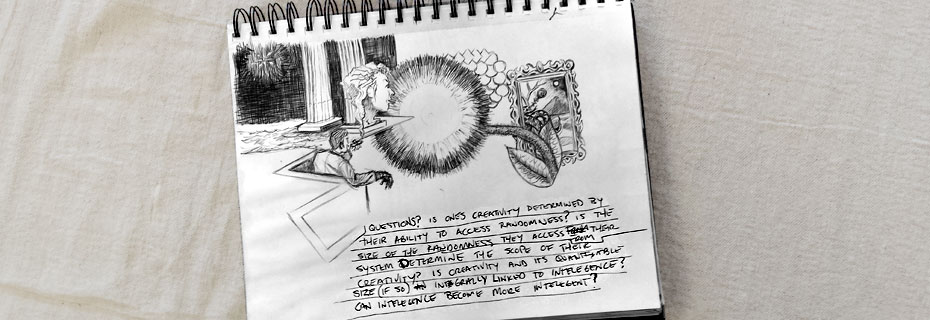 QUESTIONS? IS ONES CREATIVITY DETERMINED BY
THEIR ABILITY TO ACCESS RANDOMNESS? IS THE
SIZE OF THE RANDOMNESS THEY ACCESS FROM THEIR
SYSTEM DETERMINE THE SCOPE OF THEIR
CREATIVITY? IS CREATIVITY AND ITS QUANTIFIABLE
SIZE (IF SO) INTEGRALLY LINKED TO INTELEGENCE?
CAN INTELEGENCE BECOME MORE INTELEGENT?